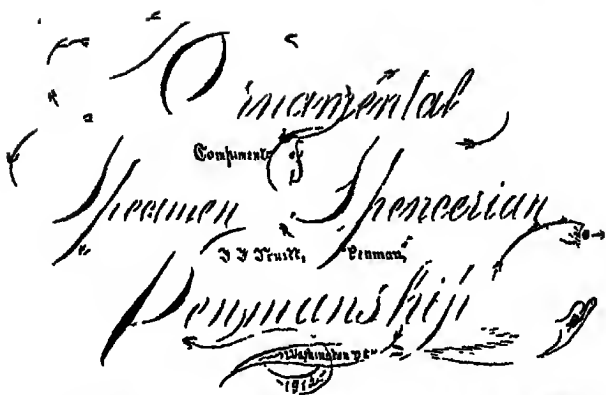 Ornamental
Compliments of
Specimen Spencerian
Penman,
Penmanship
Washington D.C.